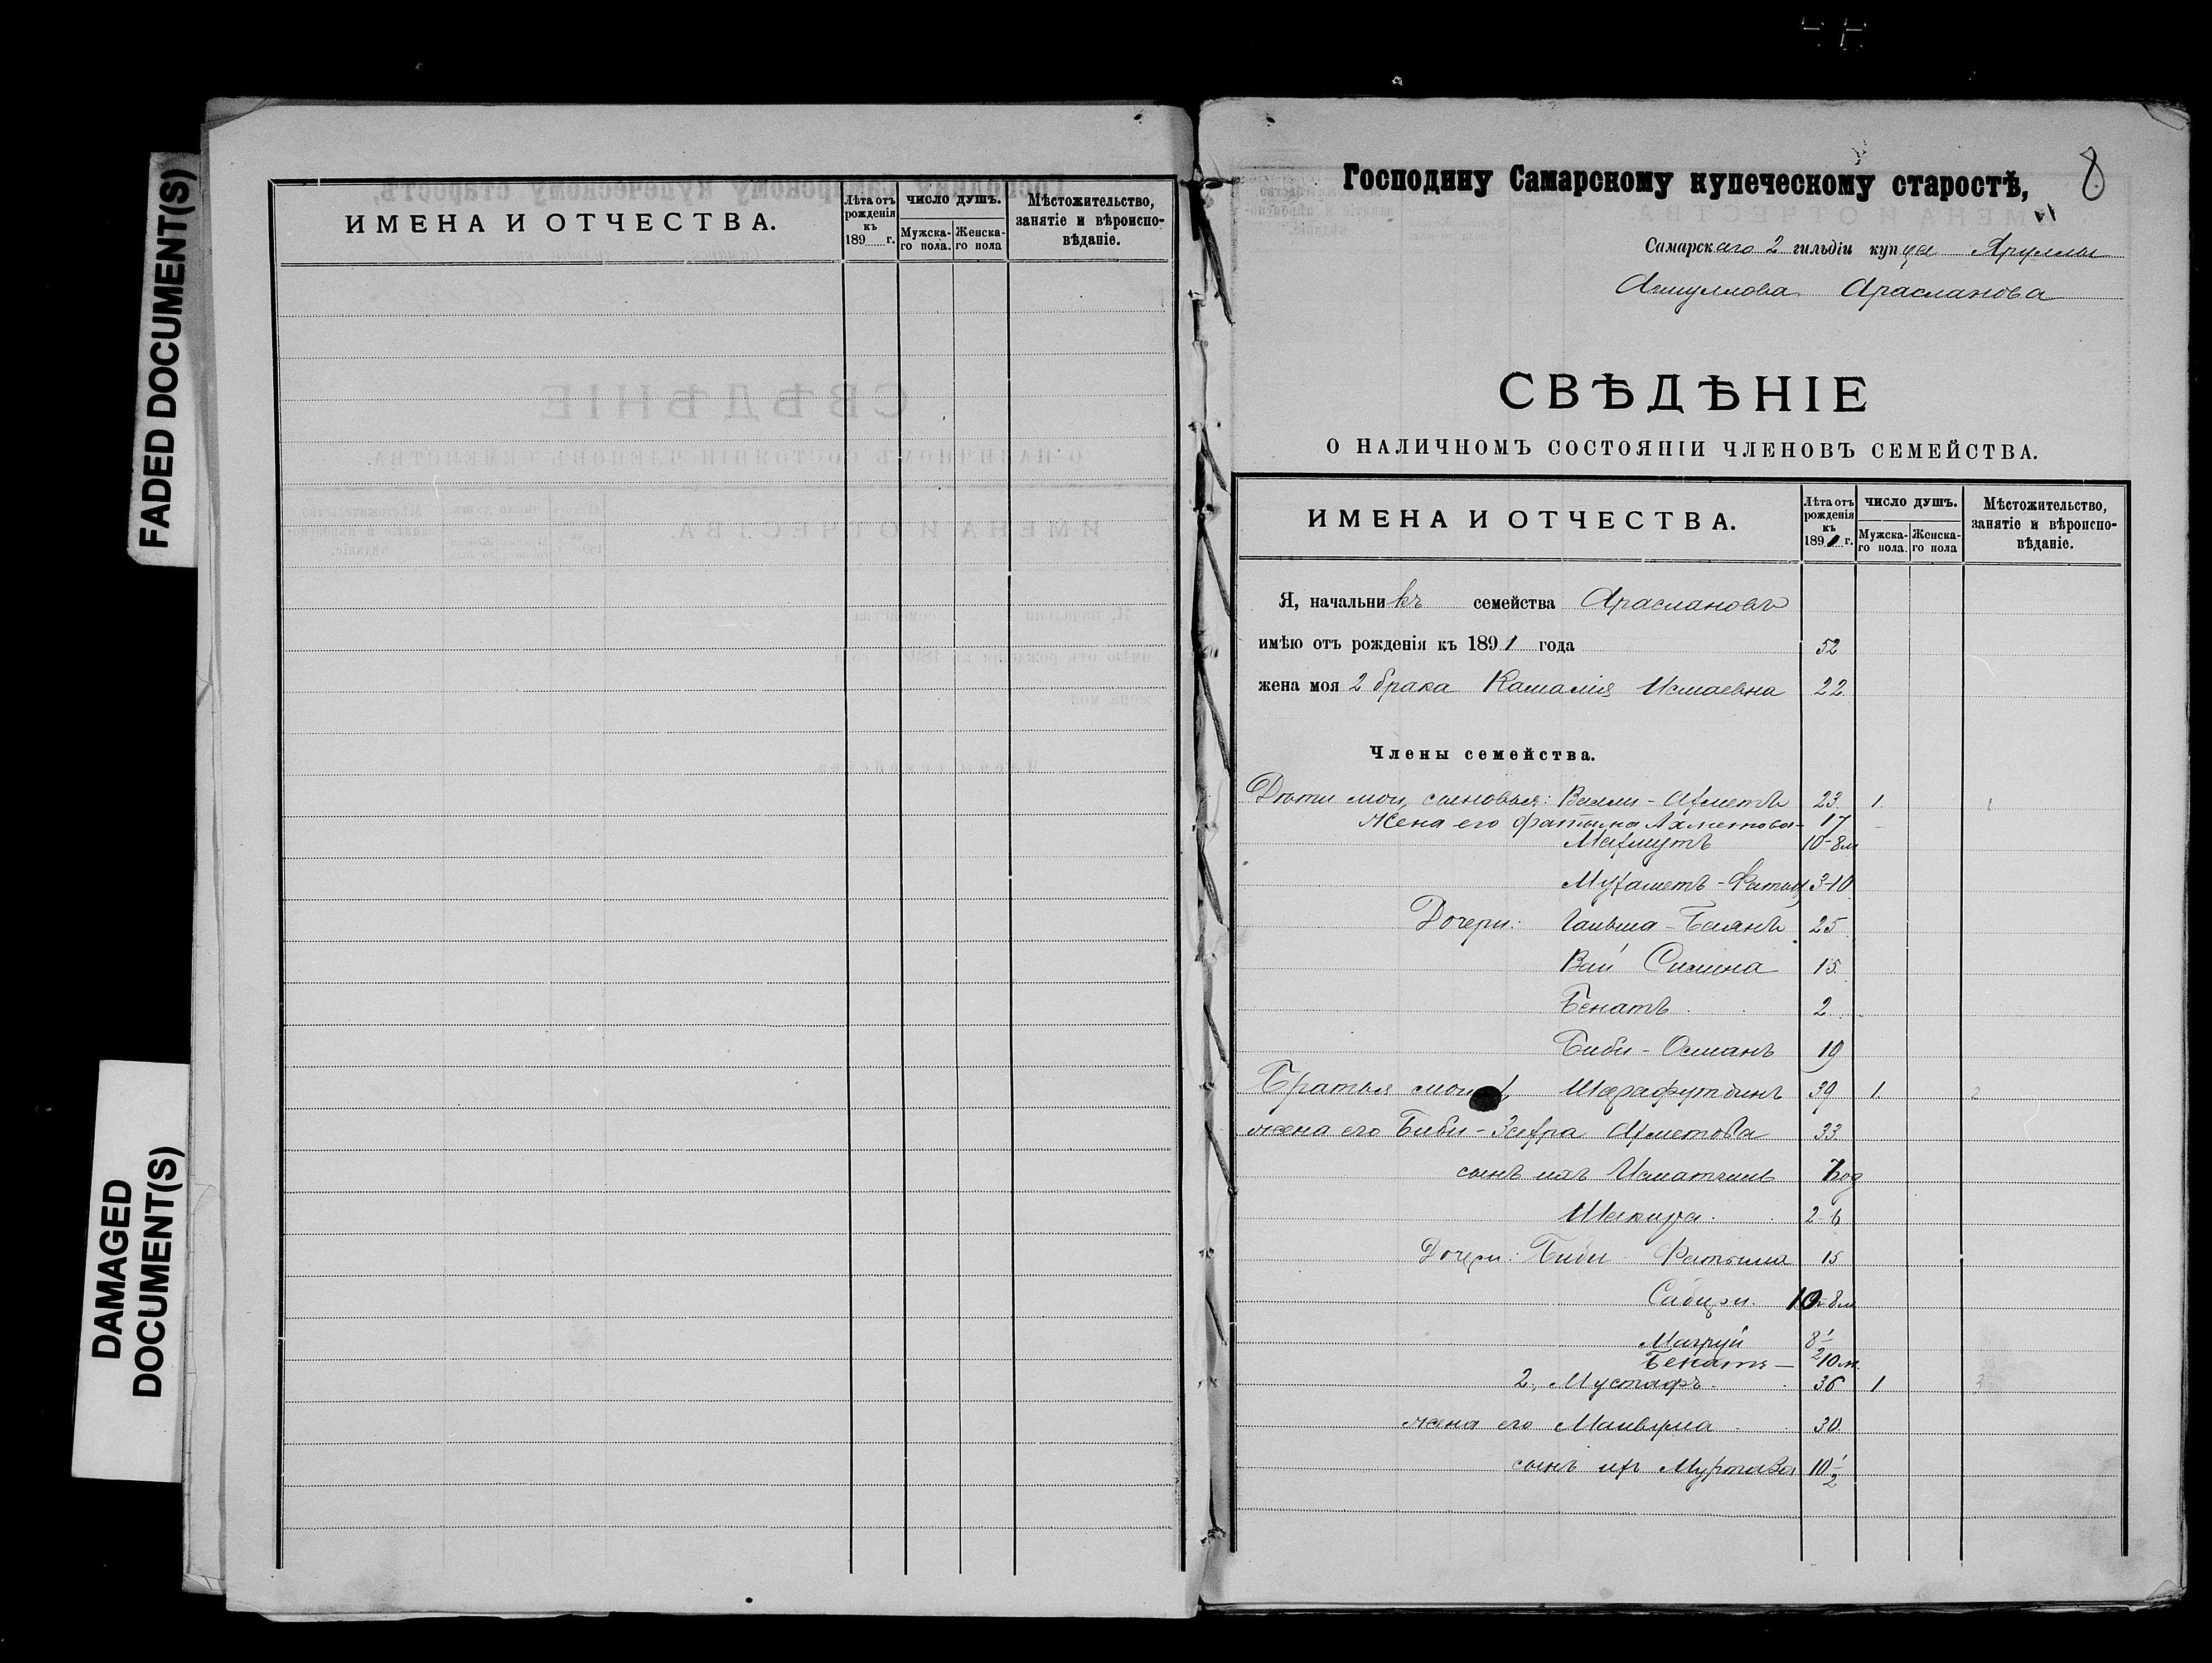 FADED DOCUMENT(S)
DAMAGED
DOCUMENT(S)
ИМЕНА И ОТЧЕСТВА.
Лѣта отъ
рожденія
къ
189 г.
ЧИСЛО ДУШЪ.
Мужска-
го пола.
Женска-
го пола
Мѣстожительство,
занятіе и вѣроиспо-
вѣданіе.
8
Господину Самарскому купеческому старостѣ,
Самарскаго 2 гильдіи купца
Арасланова
СВѢДѢНІЕ
О НАЛИЧНОМЪ СОСТОЯНІИ ЧЛЕНОВЪ СЕМЕЙСТВА.
ИМЕНА И ОТЧЕСТВА.
Лѣта отъ
рожденія
къ
1891 г.
ЧИСЛО ДУШЪ.
Мужска-
го пола.
Женска-
го пола
Мѣстожительство,
занятіе и вѣроиспо-
вѣданіе.
Я, начальникъ семейства Араслановъ
имѣю отъ рожденія къ 1891 года 52
жена моя 2 брака Камалія 22
Члены семейства.
Дѣти мои, сыновья: Валли-Ахметъ 23 1 1
Жена его Фатыма Ахметова 17
Махмутъ 10-8м
Мухаметъ- 3-10
Дочери: 25
15
Бенатъ 2
Биби-Османъ 19
Братья мои 1, Шарафутдинъ 39 1 2
жена его Биби-Зефра Ахметова 33
сынъ ихъ
Шакира 2-6
Дочери: Биби Фатыма 15
10-8м
8 1/2
Бенатъ — 10м.
2, Мустафъ 36 1 3
жена его 30
сынъ ихъ Муртаза 10 1/2